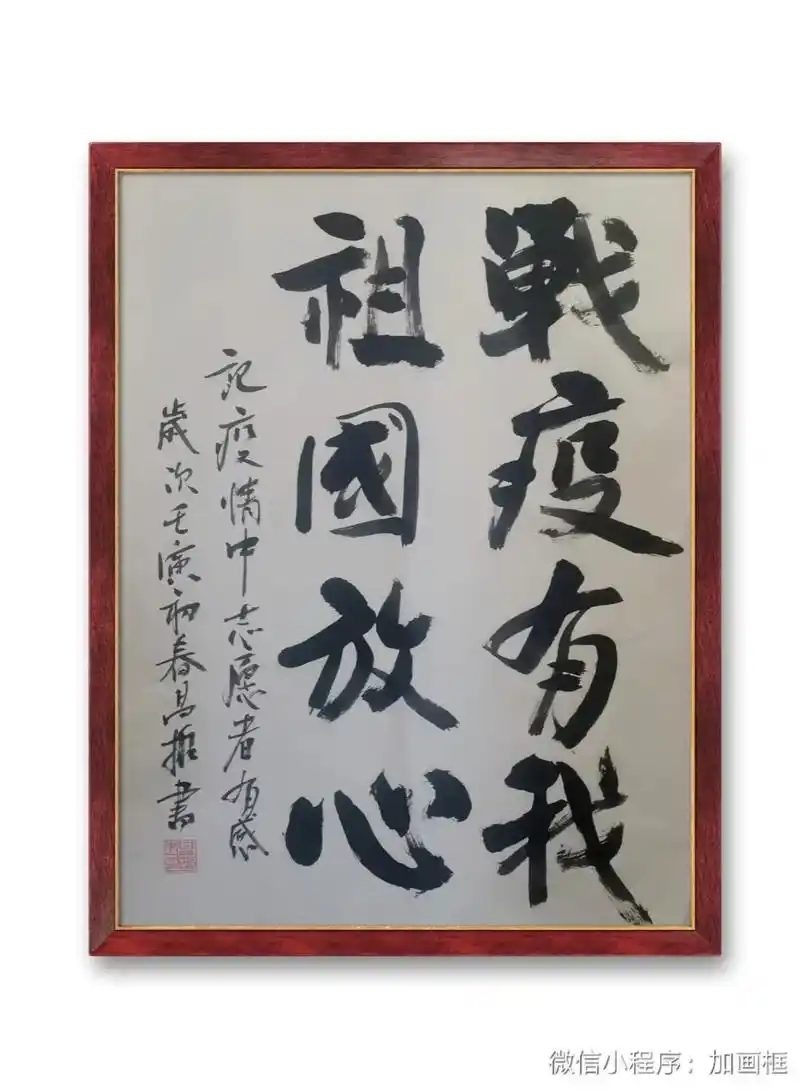 戰疫有我
祖國放心
記疫情中志愿者有感
歲次壬寅初春昌振書
微信小程序：加画框